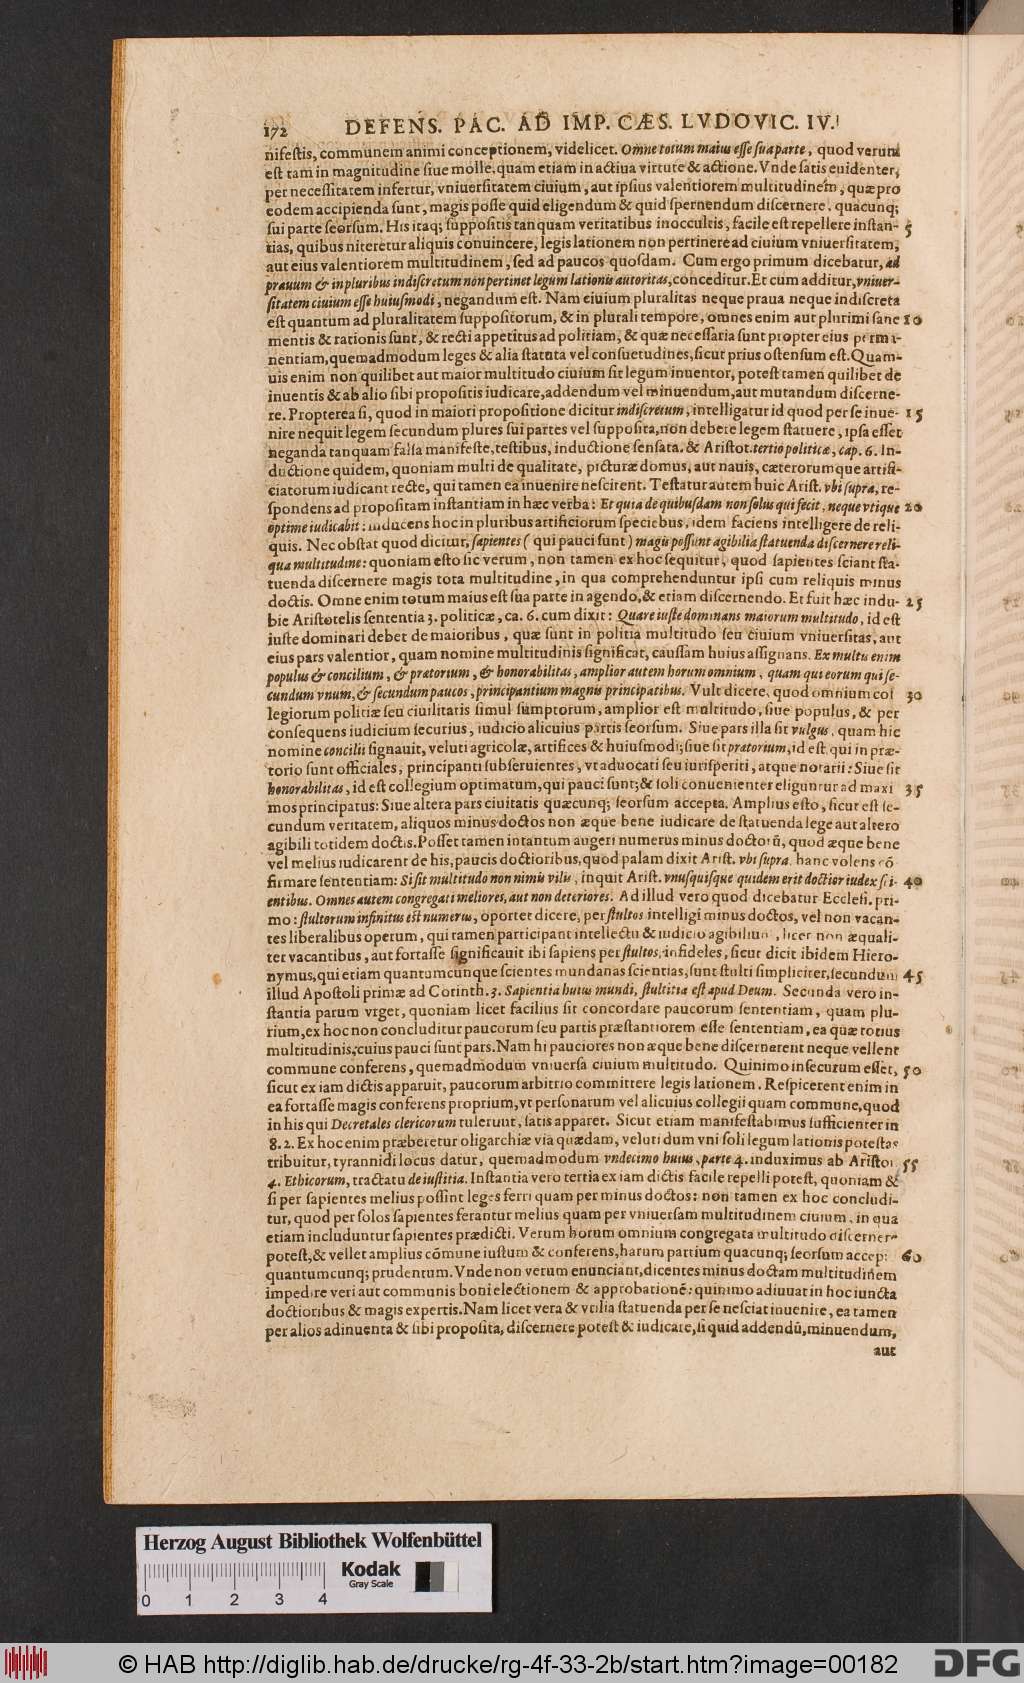 172 DEFENS. PAC. AD IMP. CÆS. LVDOVIC. IV.
nifestis, communem animi conceptionem, videlicet. Omne totum maius esse sua parte, quod verum
est tam in magnitudine siue molle, quam etiam in actiua virtute & actione. Vnde satis euidenter,
per necessitatem infertur, vniuersitatem ciuium, aut ipsius valentiorem multitudinem, quæ pro
eodem accipienda sunt, magis posse quid eligendum & quid spernendum discernere, quacunq;
sui parte seorsum. His itaq; suppositis tanquam veritatibus inoccultis, facile est repellere instan- 5
tias, quibus niteretur aliquis conuincere, legislationem non pertinere ad ciuium vniuersitatem,
aut eius valentiorem multitudinem, sed ad paucos quosdam. Cum ergo primum dicebatur, ad
prauum & in pluribus indiscretum non pertinet legum lationis autoritas, conceditur. Et cum additur, vniuer-
sitatem ciuium esse huiusmodi, negandum est. Nam ciuium pluralitas neque praua neque indiscreta
est quantum ad pluralitatem suppositorum, & in plurali tempore, omnes enim aut plurimi sane 10
mentis & rationis sunt, & recti appetitus ad politiam, & quæ necessaria sunt propter eius perma-
nentiam, quemadmodum leges & alia statuta vel consuetudines, sicut prius ostensum est. Quam-
uis enim non quilibet aut maior multitudo ciuium sit legum inuentor, potest tamen quilibet de
inuentis & ab alio sibi propositis iudicare, addendum vel minuendum, aut mutandum discerne-
re. Propterea si, quod in maiori propositione dicitur indiscretum, intelligatur id quod per se inue- 15
nire nequit legem secundum plures sui partes vel supposita, non debere legem statuere, ipsa esset
neganda tanquam falsa manifeste, testibus, inductione sensata. & Aristot. tertio politicæ, cap. 6. In-
ductione quidem, quoniam multi de qualitate, picturæ domus, aut nauis, cæterorumque artifi-
ciatorum iudicant recte, qui tamen ea inuenire nescirent. Testatur autem huic Arist. vbi supra, re-
spondens ad propositam instantiam in hæc verba: Et quia de quibusdam non solus qui fecit, neque vtique 20
optime iudicabit: inducens hoc in pluribus artificiorum speciebus, idem faciens intelligere de reli-
quis. Nec obstat quod dicitur, sapientes (qui pauci sunt) magis possunt agibilia statuenda discernere reli-
qua multitudine: quoniam esto sic verum, non tamen ex hoc sequitur, quod sapientes sciant sta-
tuenda discernere magis tota multitudine, in qua comprehenduntur ipsi cum reliquis minus
doctis. Omne enim totum maius est sua parte in agendo, & etiam discernendo. Et fuit hæc indu- 25
bie Aristotelis sententia 3. politicæ, ca. 6. cum dixit: Quare iuste dominans maiorum multitudo, id est
iuste dominari debet de maioribus, quæ sunt in politia multitudo seu ciuium vniuersitas, aut
eius pars valentior, quam nomine multitudinis significat, caussam huius assignans. Ex multis enim
populus & concilium, & pratorium, & honorabilitas, amplior autem horum omnium, quam qui eorum qui se-
cundum vnum, & secundum paucos, principantium magnis principatibus. Vult dicere, quod omnium col 30
legiorum politiæ seu ciuilitatis simul sumptorum, amplior est multitudo, siue populus, & per
consequens iudicium securius, iudicio alicuius partis seorsum. Siue pars illa sit vulgus, quam hic
nomine concilii signauit, veluti agricolæ, artifices & huiusmodi; siue sit pratorium, id est, qui in præ-
torio sunt officiales, principanti subseruientes, vt aduocati seu iurisperiti, atque notarii: Siue sit
honorabilitas, id est collegium optimatum, qui pauci sunt; & soli conuenienter eliguntur ad maxi 35
mos principatus: Siue altera pars ciuitatis quæcunq; seorsum accepta. Amplius esto, sicut est se-
cundum veritatem, aliquos minus doctos non æque bene iudicare de statuenda lege aut altero
agibili totidem doctis. Posset tamen intantum augeri numerus minus doctorū, quod æque bene
vel melius iudicarent de his, paucis doctioribus, quod palam dixit Arist. vbi supra, hanc volens cō
firmare sententiam: Si sit multitudo non nimis vilis, inquit Arist. vnusquisque quidem erit doctior iudex sci- 40
entibus. Omnes autem congregati meliores, aut non deteriores. Ad illud vero quod dicebatur Ecclesi. pri-
mo: stultorum infinitus est numerus, oportet dicere, per stultos intelligi minus doctos, vel non vacan-
tes liberalibus operum, qui tamen participant intellectu & iudicio agibilium, licet non æquali-
ter vacantibus, aut fortasse significauit ibi sapiens per stultos, infideles, sicut dicit ibidem Hiero-
nymus, qui etiam quantumcunque scientes mundanas scientias, sunt stulti simpliciter, secundum 45
illud Apostoli primæ ad Corinth. 3. Sapientia huius mundi, stultitia est apud Deum. Secunda vero in-
stantia parum vrget, quoniam licet facilius sit concordare paucorum sententiam, quam plu-
rium, ex hoc non concluditur paucorum seu partis præstantiorem esse sententiam, ea quæ totius
multitudinis, cuius pauci sunt pars. Nam hi pauciores non æque bene discernerent neque vellent
commune conferens, quemadmodum vniuersa ciuium multitudo. Quinimo insecurum esset, 50
sicut ex iam dictis apparuit, paucorum arbitrio committere legis lationem. Respicerent enim in
ea fortasse magis conferens proprium, vt personarum vel alicuius collegii quam commune, quod
in his qui Decretales clericorum tulerunt, satis apparet. Sicut etiam manifestabimus sufficienter in
8. 2. Ex hoc enim præberetur oligarchiæ via quædam, veluti dum vni soli legum lationis potestas
tribuitur, tyrannidi locus datur, quemadmodum vndecimo huius, parte 4. induximus ab Aristot 55
4. Ethicorum, tractatu de iustitia. Instantia vero tertia ex iam dictis facile repelli potest, quoniam &
si per sapientes melius possint leges ferri quam per minus doctos: non tamen ex hoc concludi-
tur, quod per solos sapientes ferantur melius quam per vniuersam multitudinem ciuium, in qua
etiam includuntur sapientes prædicti. Verum horum omnium congregata multitudo discernere
potest, & vellet amplius cōmune iustum & conferens, harum partium quacunq; seorsum accep: 60
quantumcunq; prudentum. Vnde non verum enunciant, dicentes minus doctam multitudinem
impedire veri aut communis boni electionem & approbationē: quinimo adiuuat in hoc iuncta
doctioribus & magis expertis. Nam licet vera & vtilia statuenda per se nesciat inuenire, ea tamen
per alios adinuenta & sibi proposita, discernere potest & iudicare, si quid addendū, minuendum,
aut
Herzog August Bibliothek Wolfenbüttel
Kodak
Gray Scale
0 1 2 3 4
© HAB http://diglib.hab.de/drucke/rg-4f-33-2b/start.htm?image=00182
DFG